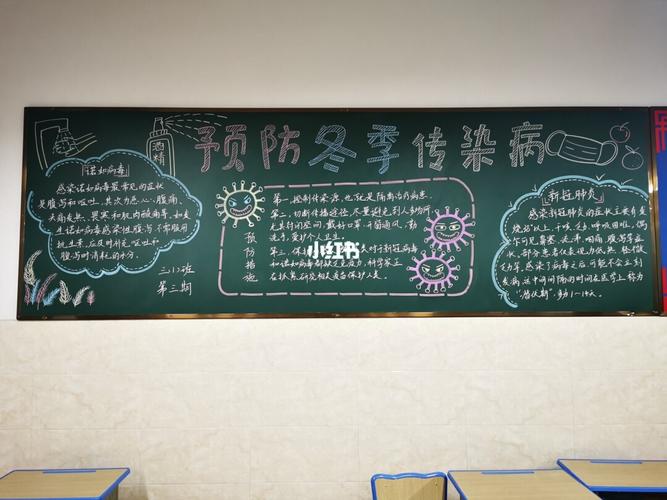 预防冬季传染病
酒精
诺如病毒
感染诺如病毒最常见的症状
是腹泻和呕吐,其次为恶心,腹痛,
头痛发热,畏寒和肌肉酸痛等,如发
生诺如病毒感染性腹泻不需服用
抗生素,应及时补充呕吐和
腹泻时消耗的水分。
三12班
第三期
预防措施
第一,控制传染源,也就是隔离治疗病患。
第二,切断传播途径,尽量避免到人多场所,
无其封闭空间,戴好口罩,开窗通风,勤
洗手,爱护个人卫生。
第三,保
大对于新冠病毒
和诺如病毒都缺乏免疫力,科学家正
在状态研究相关疫苗保护人类。
小红书
新冠肺炎
感染新冠肺炎的症状主要有发
烧,干咳,乏力,呼吸困难,偶
尔可见鼻塞,流涕,咽痛,腹泻等症
状,部分患者仅表现为低热,轻微
乏力等,感染了病毒之后可能不会立刻
发病,这中间间隔的时间在医学上称为
“潜伏期”,多为1-14天。